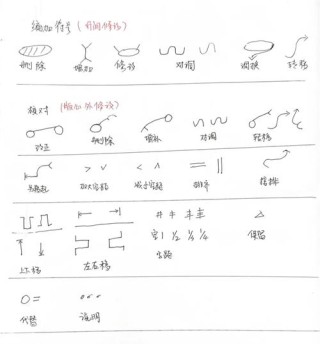 编加符号（行间修改）
删除 增加 修改 对调 调换 转移
校对（版心外修改）
改正 删除 增补 对调 转移
另起起 加大空距 减小空距 排齐 接排
空1 1/2 1/3 1/4 保留
上下移 左右移 空距
代替 说明